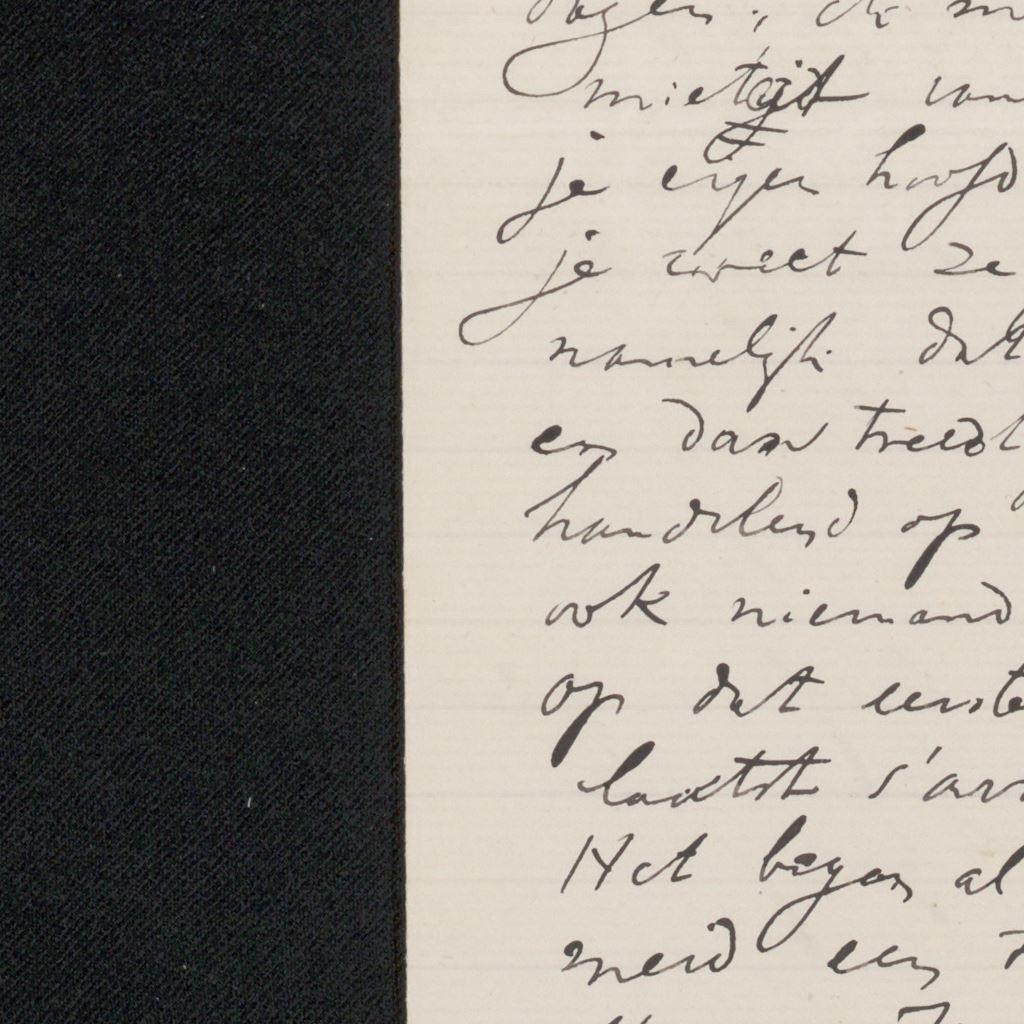 dagen; de m
mietijt van
je eigen hoofd
je weet ze
namelijk dat
en dan treedt
handelend op
ook niemand
op dat eerste
laatst s'av
Het began al
meid een